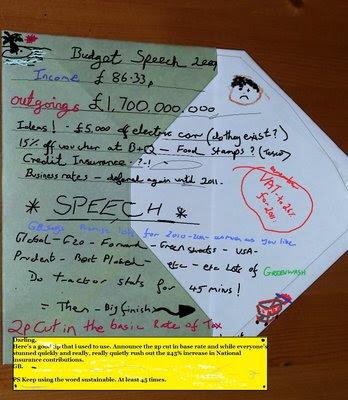 Budget Speech 2009
Income £ 86.33p
outgoings £1,700,000,000
Ideas! - £5,000 of electric car (do they exist?)
15% off voucher at B+Q - Food Stamps? (Tesco)
Credit Insurance - ? - !
Business rates - deferale again until 2011.
remember
VAT - to 26%
for 2001.
* SPEECH *
GB says Promise lots for 2010-2011 - as you like
Global - G20 - Forward - Green shoots - USA -
Prudent - Best Placed - etc - etc Lots of GREENWASH
Do tractor stats for 45 mins!
= Then - Big finish →
2p Cut in the basic Rate of Tax
Darling,
Here's a good tip that i used to use. Announce the 2p cut in base rate and while everyone's
stunned quickly and really, really quietly rush out the 245% increase in National
insurance contributions.
GB.
PS Keep using the word sustainable. At least 45 times.